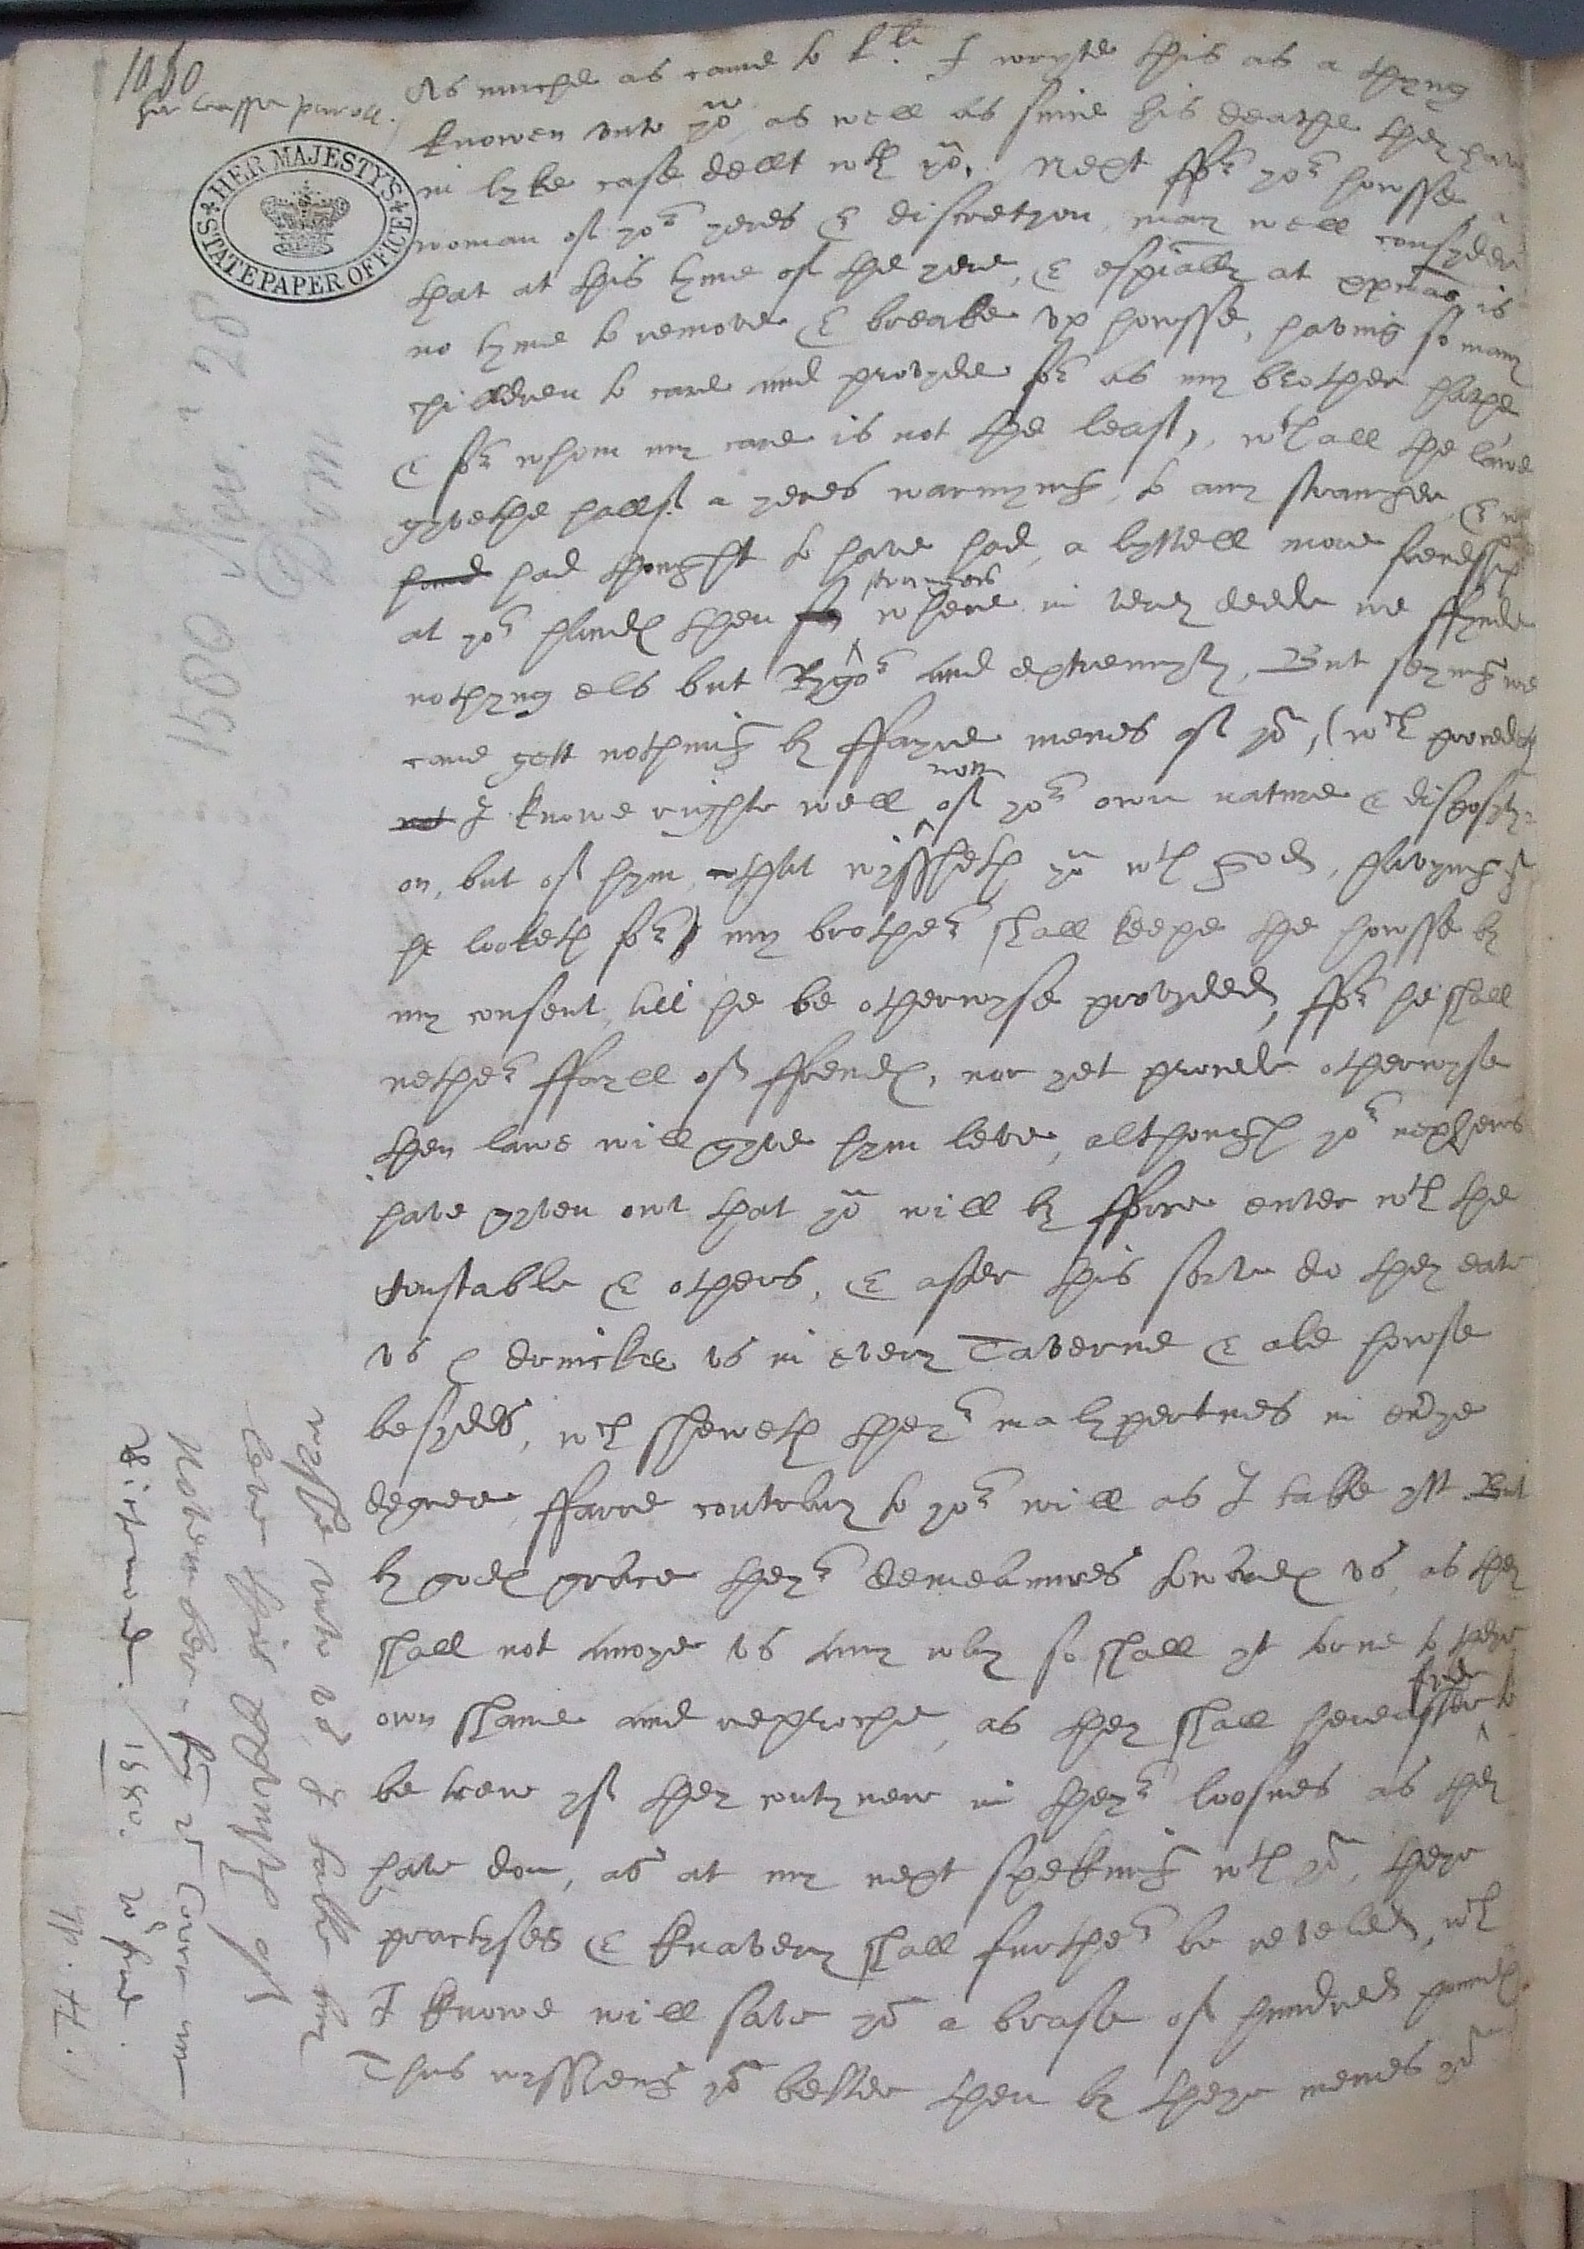 1080
HER MAJESTY'S
STATE PAPER OFFICE
As muche as came to l li I wryte this as a thyng
knowen unto yo as well as sinne his deathe they have
in lyke case dellt wth yo. Next ffr yor howsse a
woman of yor yeres & discretyon may well consyder
that at this tyme of the yere, & espially at xpmas is
no tyme to remove & breake up howsse, having so many
children to care and provyde for as my brother hathe
& for whom my care is not the least, wth all the lawe
gyvethe hallf a yeres warnyng to any straunger, &
had thought to have had a lyttell more frendshipp
at yor handes then straungers where in very deede we ffynde
nothyng els but Rygor and extremyty, But seying we
cane gett nothing by ffayre menes of yo, (wch procedeth
not I knowe righte well non of yor own nature & disposity=
on, but of hym that wyssheth yo wth god, havyng yt
he looketh for) my brother shall keepe the howsse by
my consent till he be otherwyse provyded, ffor he shall
nether ffayll of ffrendes, nor yet procede otherwyse
then lawe will gyve hym leve, although yor nephews
have gyven out that yo will by fforce enter wth the
Constable & others, & after this sorte do they eate
us & drincke us in every Taverne & ale howse
besydes, wch sheweth theyr malypertnes in every
degree, ffarre contrary to yor will as I take ytt But
by godes grace theyr demeanures towardes us, as they
shall not anoye us any way so shall yt torne to theyr
own shame and reproche, as they shall hereafter fynde to
be trew yf they contynew in theyr loosnes as they
have don, as at my next speking wth yo, theyr
practyses & knavery shall further be reveled, wch
I knowe will save yo a brase of hundred poundes.
Thus wyssheng yo better then by theyr menes yo
wysshe unto us, I take my
leve this eightenth of
November
1580.
1580 Nov. 28